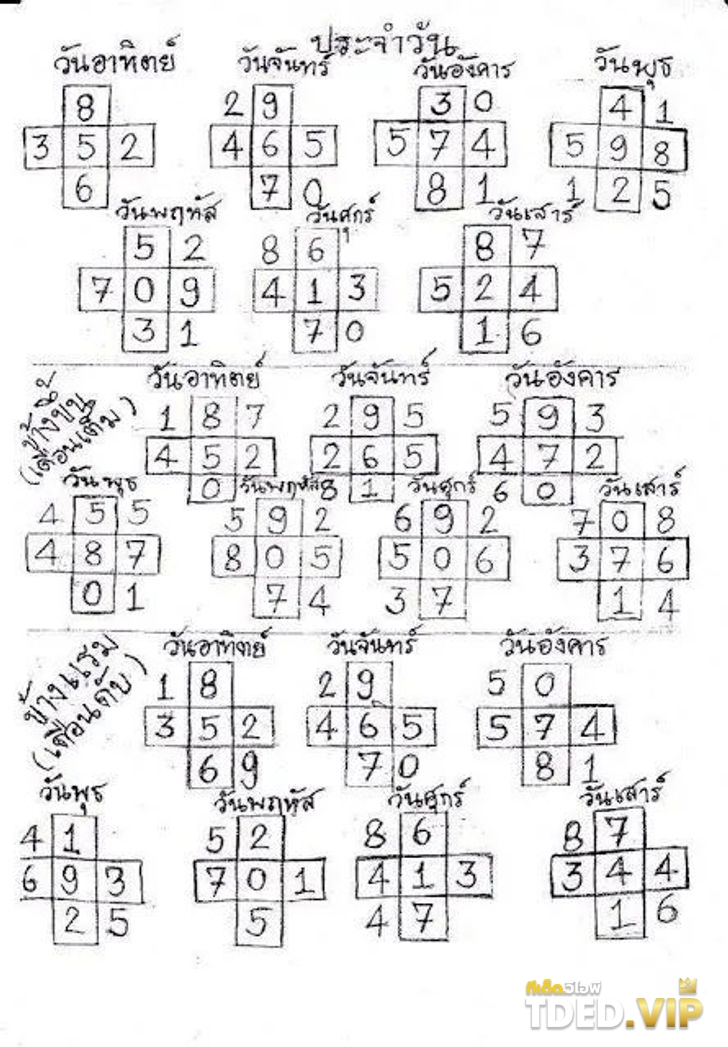 ประจำวัน
วันอาทิตย์ วันจันทร์ วันอังคาร วันพุธ
8 2 9 3 0 4 1
3 5 2 4 6 5 5 7 4 5 9 8
6 7 0 8 1 1 2 5
วันพฤหัส วันศุกร์ วันเสาร์
5 2 8 6 8 7
7 0 9 4 1 3 5 2 4
3 1 7 0 1 6
ข้างขึ้นนี้
(เดือนเต็ม)
วันอาทิตย์ วันจันทร์ วันอังคาร
1 8 7 2 9 5 5 9 3
4 5 2 2 6 5 4 7 2
0 8 1 6 0
วันพุธ วันพฤหัส วันศุกร์ วันเสาร์
4 5 5 5 9 2 6 9 2 7 0 8
4 8 7 8 0 5 5 0 6 3 7 6
0 1 7 4 3 7 1 4
ข้างแรม
(เดือนดับ)
วันอาทิตย์ วันจันทร์ วันอังคาร
1 8 2 9 5 0
3 5 2 4 6 5 5 7 4
6 9 7 0 8 1
วันพุธ วันพฤหัส วันศุกร์ วันเสาร์
4 1 5 2 8 6 8 7
6 9 3 7 0 1 4 1 3 3 4 4
2 5 5 4 7 1 6
ทีเด็ดรวิเอฟ
TDED.VIP